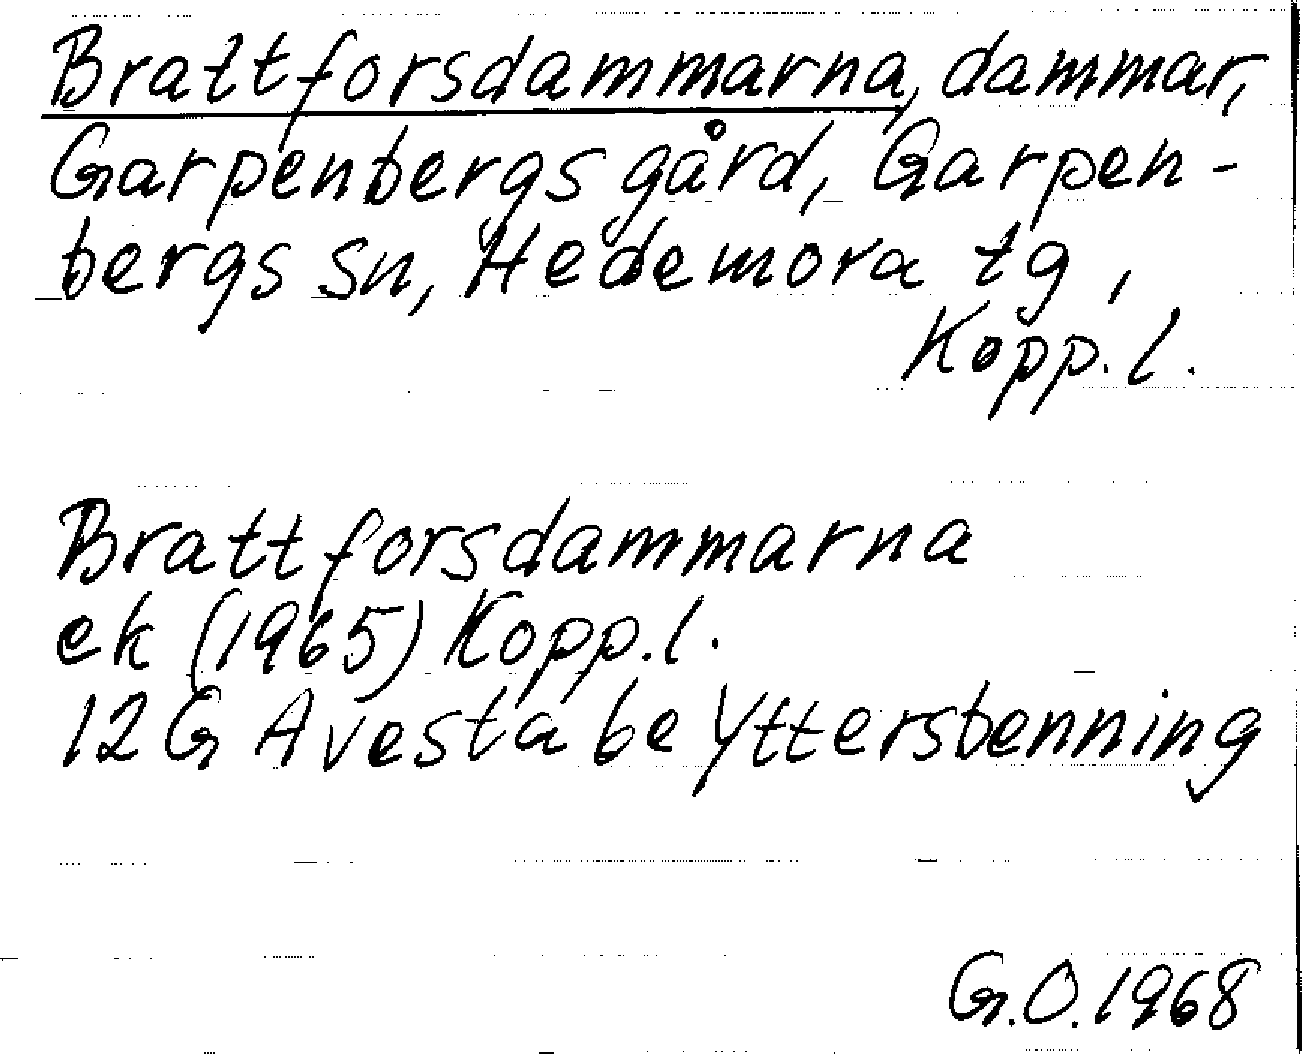 Brattforsdammarna, dammar,
Garpenbergs gård, Garpen-
bergs sn, Hedemora tg,
Kopp. l.
Brattforsdammarna
ek (1965) Kopp. l.
12 G Avesta be Yttersbenning
G.O. 1968